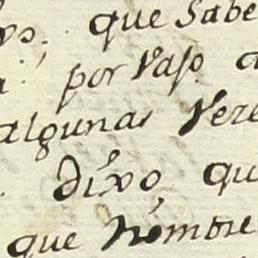 que Sabe
por Vaso
algunas Vere
dixo qu
que nombre